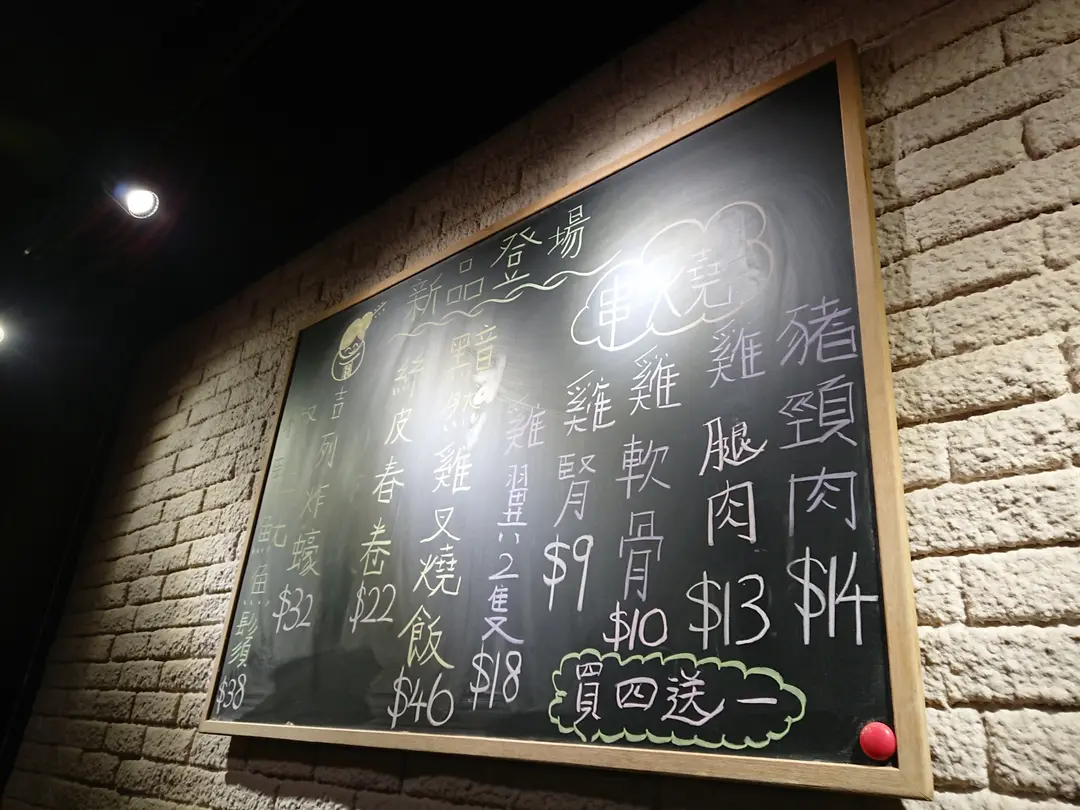 新品登場
串燒
豬頸肉 $14
雞腿肉 $13
雞軟骨 $10
雞腎 $9
雞翼2隻 $18
黯然雞叉燒飯 $46
皮春卷 $22
吉列炸蠔 $32
魷魚鬚 $38
買四送一